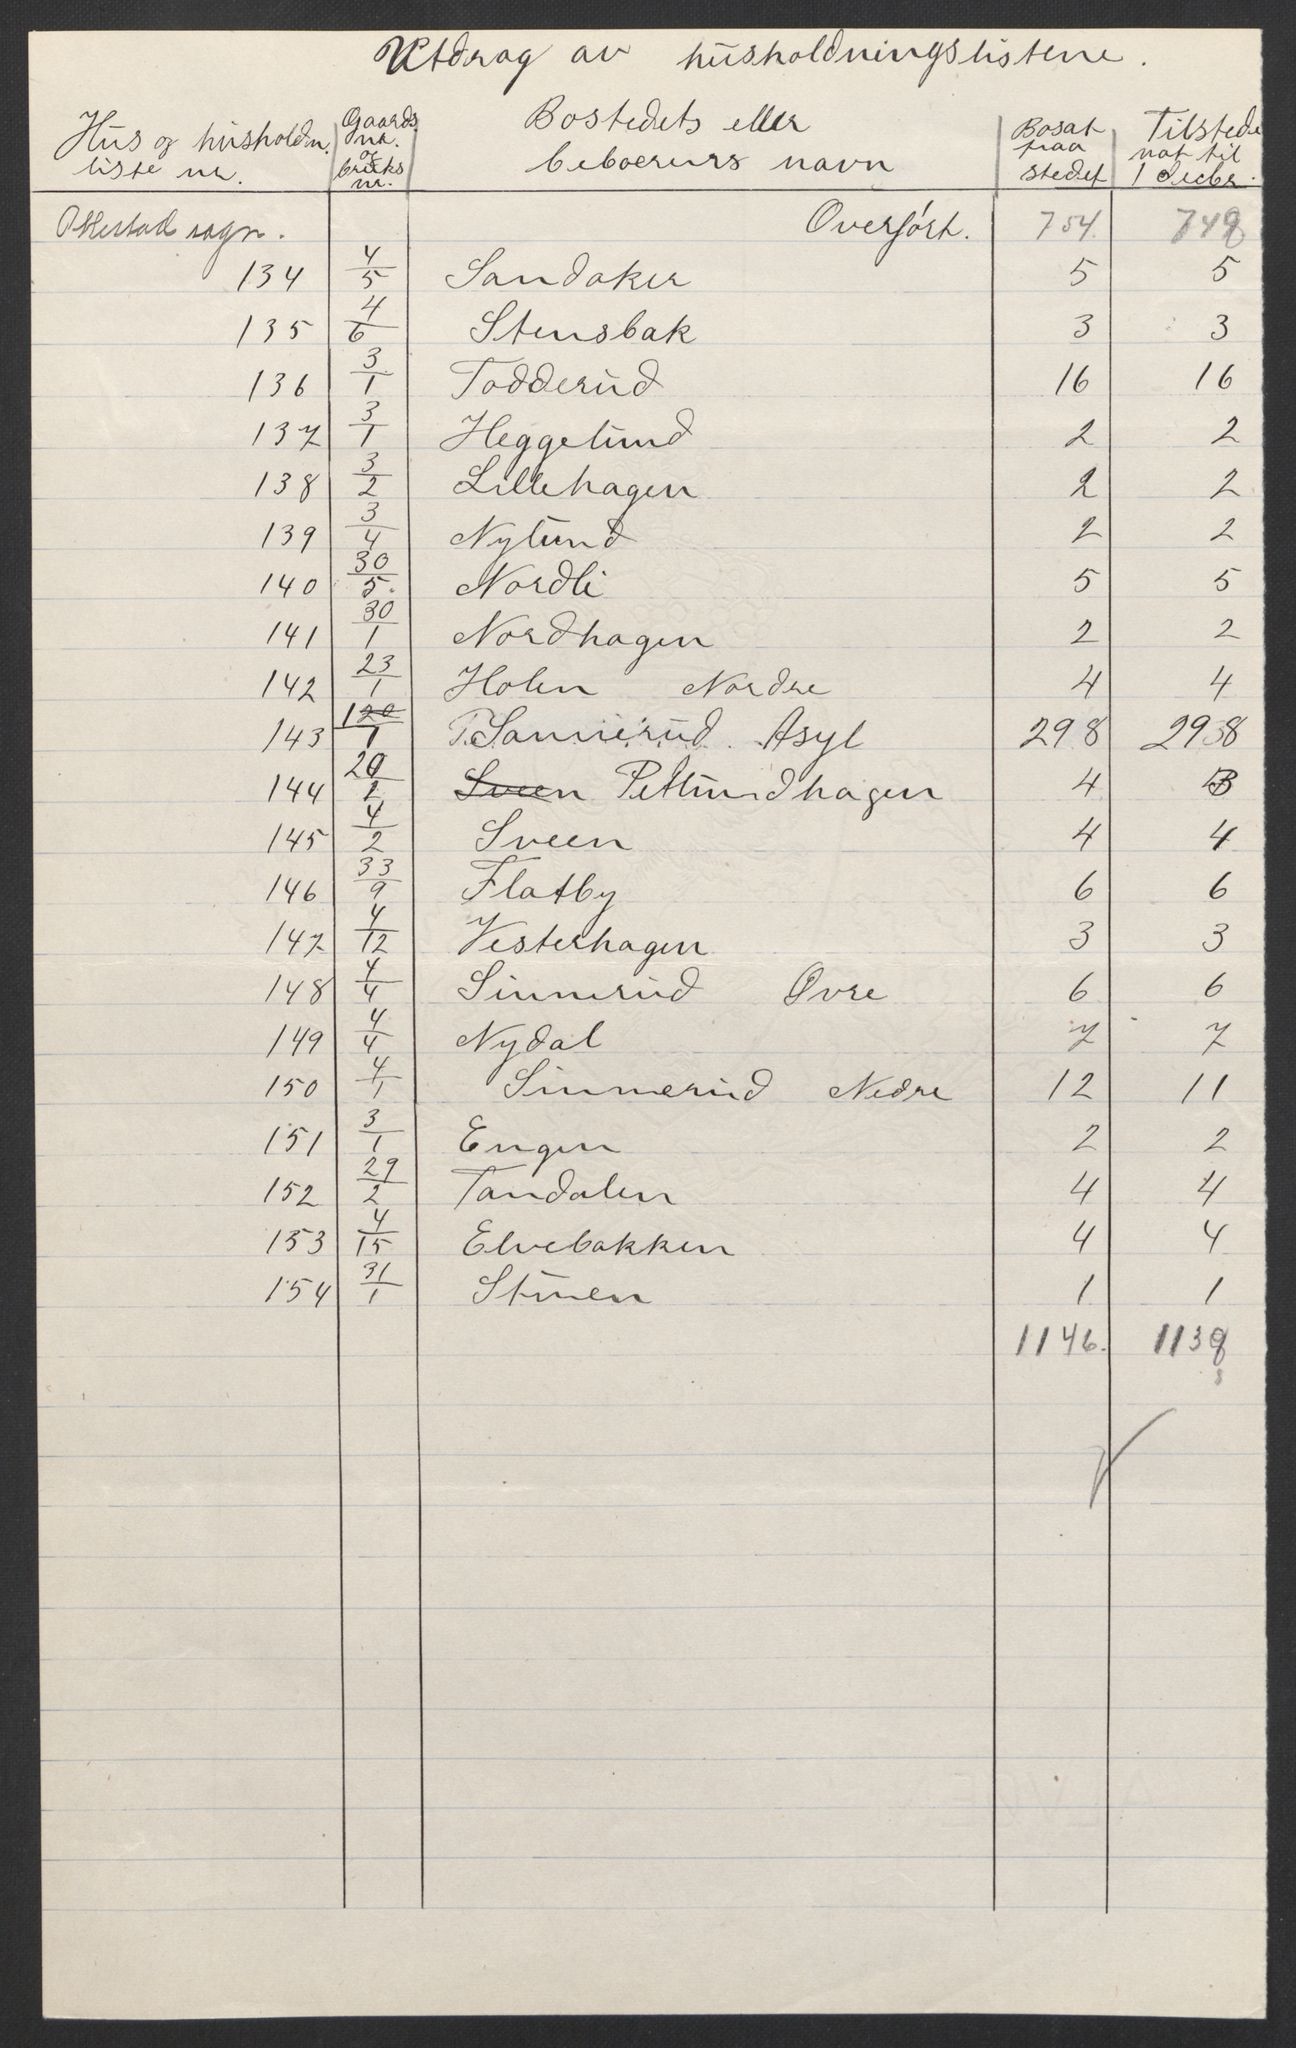 Utdrag av husholdningslistene.
Hus og husholdn. liste nr. | Gaards nr. og bruks nr. | Bostedets eller beboerers navn | Bosat paa stedet | Tilstede nat til 1 decbr.
Ottestad sogn. Overført. 754. 749
134 4/5 Sandaker 5 5
135 4/6 Stensbak 3 3
136 3/1 Todderud 16 16
137 3/1 Heggelund 2 2
138 3/2 Lillehagen 2 2
139 3/4 Nylund 2 2
140 30/5. Nordli 5 5
141 30/1 Nordhagen 2 2
142 23/1 Holen Nordre 4 4
143 1/1 Sannerud Asyl 298 298
144 20/2 Sveen Pellundhagen 4 3
145 4/2 Sveen 4 4
146 33/9 Flatby 6 6
147 4/12 Vesterhagen 3 3
148 4/4 Sinnerud Øvre 6 6
149 4/4 Nydal 7 7
150 4/1 Sinnerud Nedre 12 11
151 3/1 Engen 2 2
152 29/2 Tandalen 4 4
153 4/15 Elvebakken 4 4
154 31/1 Stuen 1 1
1146. 1139